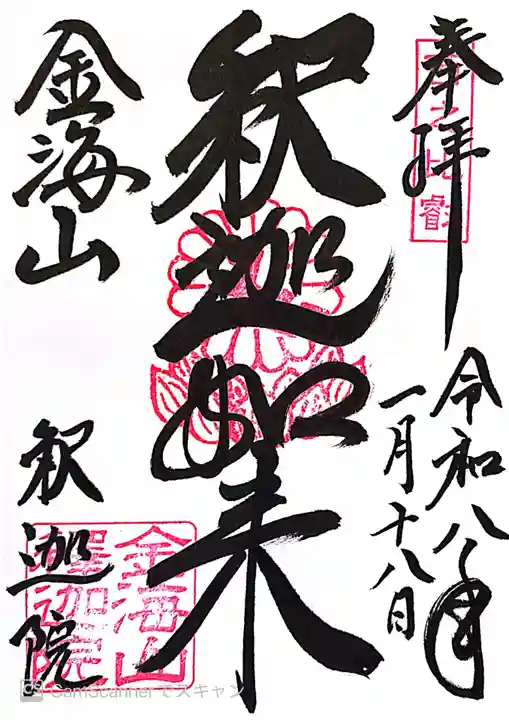 奉拝
令和八年
一月十八日
釈迦如来
金海山
釈迦院
金海山
釋迦院
CS CamScanner でスキャン